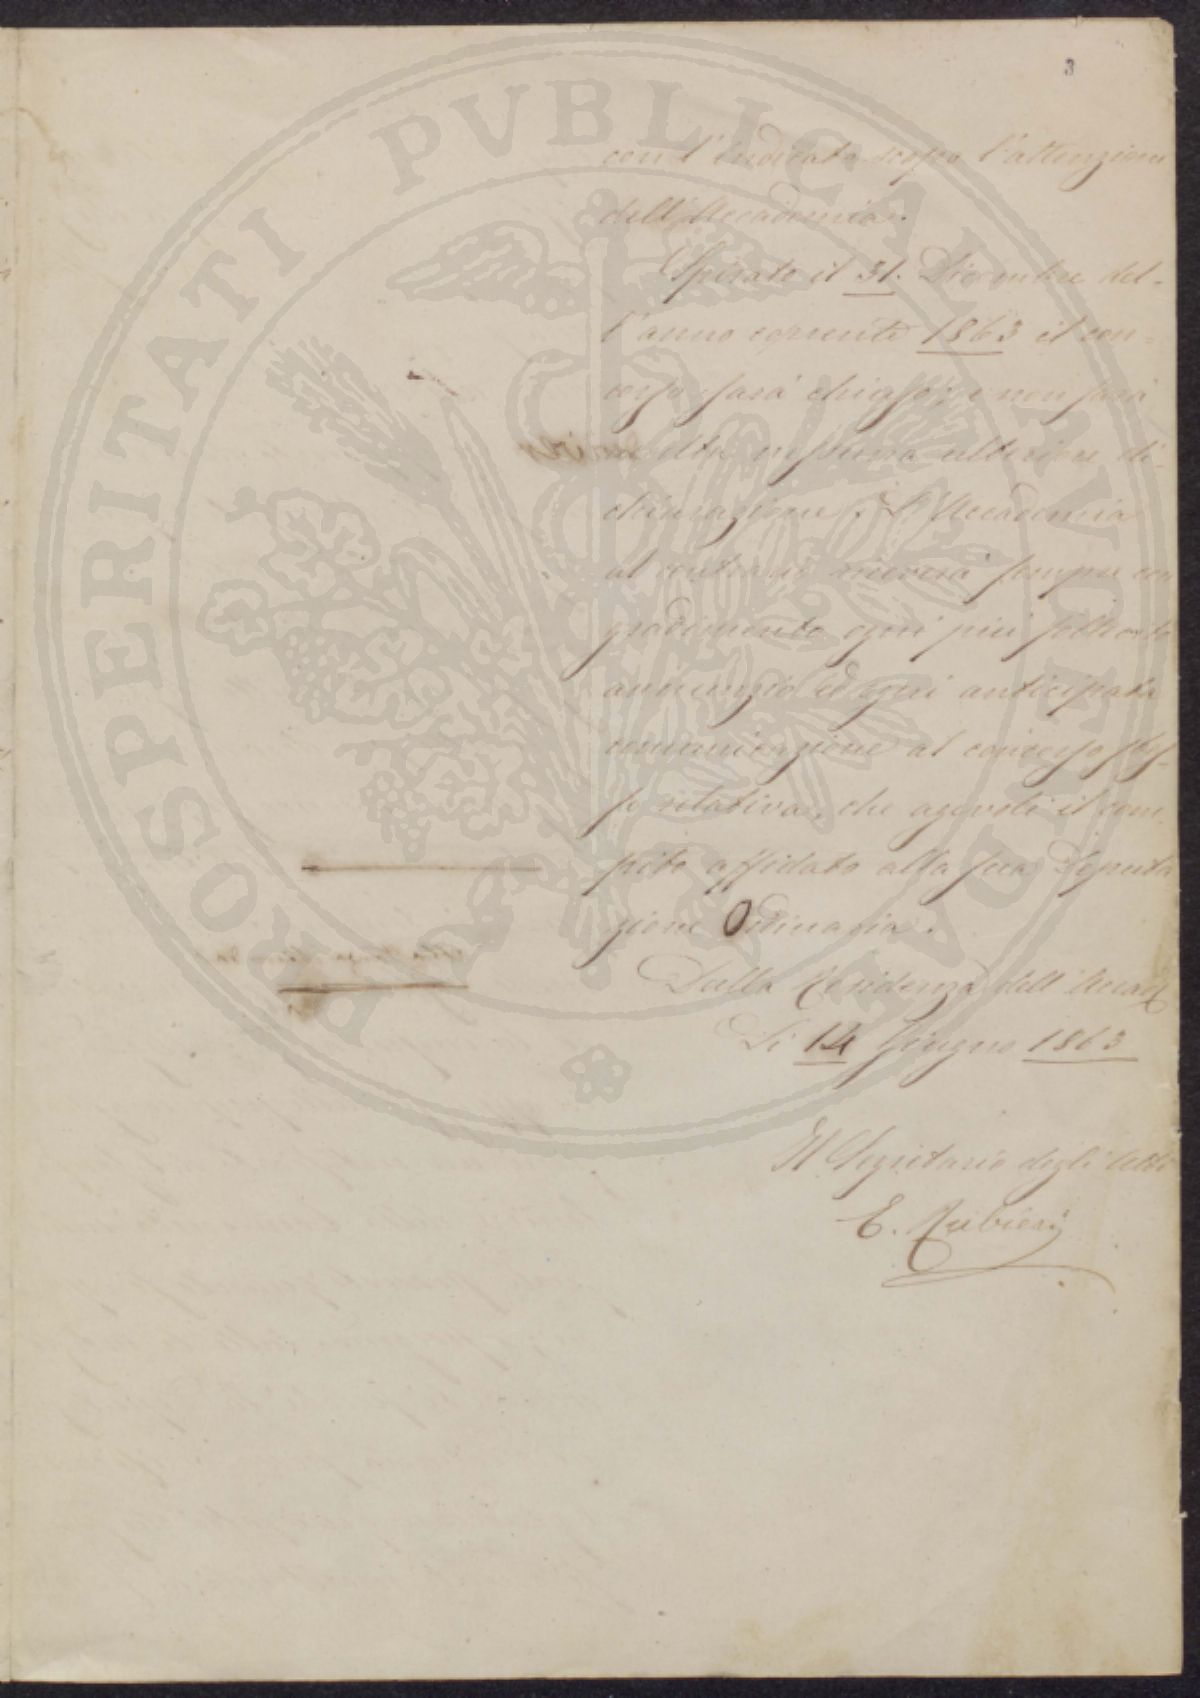 3
PROSPERITATI PVBLICAE AVGENDAE
con l'indicato scopo l'attenzione
dell'Accademia.
Spirato il 31. Dicembre del-
l'anno corrente 1863 il con-
corso sarà chiuso; e non sarà
nessuna ulteriore di-
chiarazione. L'Accademia
al contrario riceverà sempre con
gradimento ogni più sollecito
annunzio ed ogni anticipata
comunicazione al concorso stes-
so relativa, che agevoli il com-
pito affidato alla sua Deputa
zione Ordinaria.
Dalla Residenza dell'Accad.
Li 14 Giugno 1863
Il Segretario degli Atti
E. Rubieri